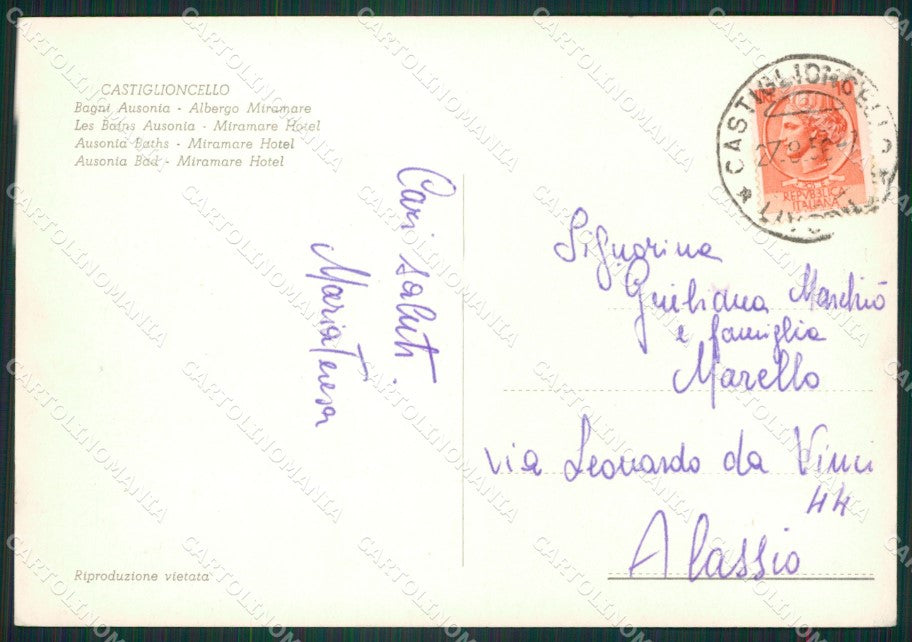 CASTIGLIONCELLO
Bagni Ausonia - Albergo Miramare
Les Bains Ausonia - Miramare Hotel
Ausonia Baths - Miramare Hotel
Ausonia Bad - Miramare Hotel
Cari saluti
Maria Teresa
CASTIGLIONCELLO
REPVBBLICA
ITALIANA
Signorina
Giuliana
e famiglia
Marello
via Leonardo da Vinci
44
Alassio
Riproduzione vietata
CARTOLINOMANIA